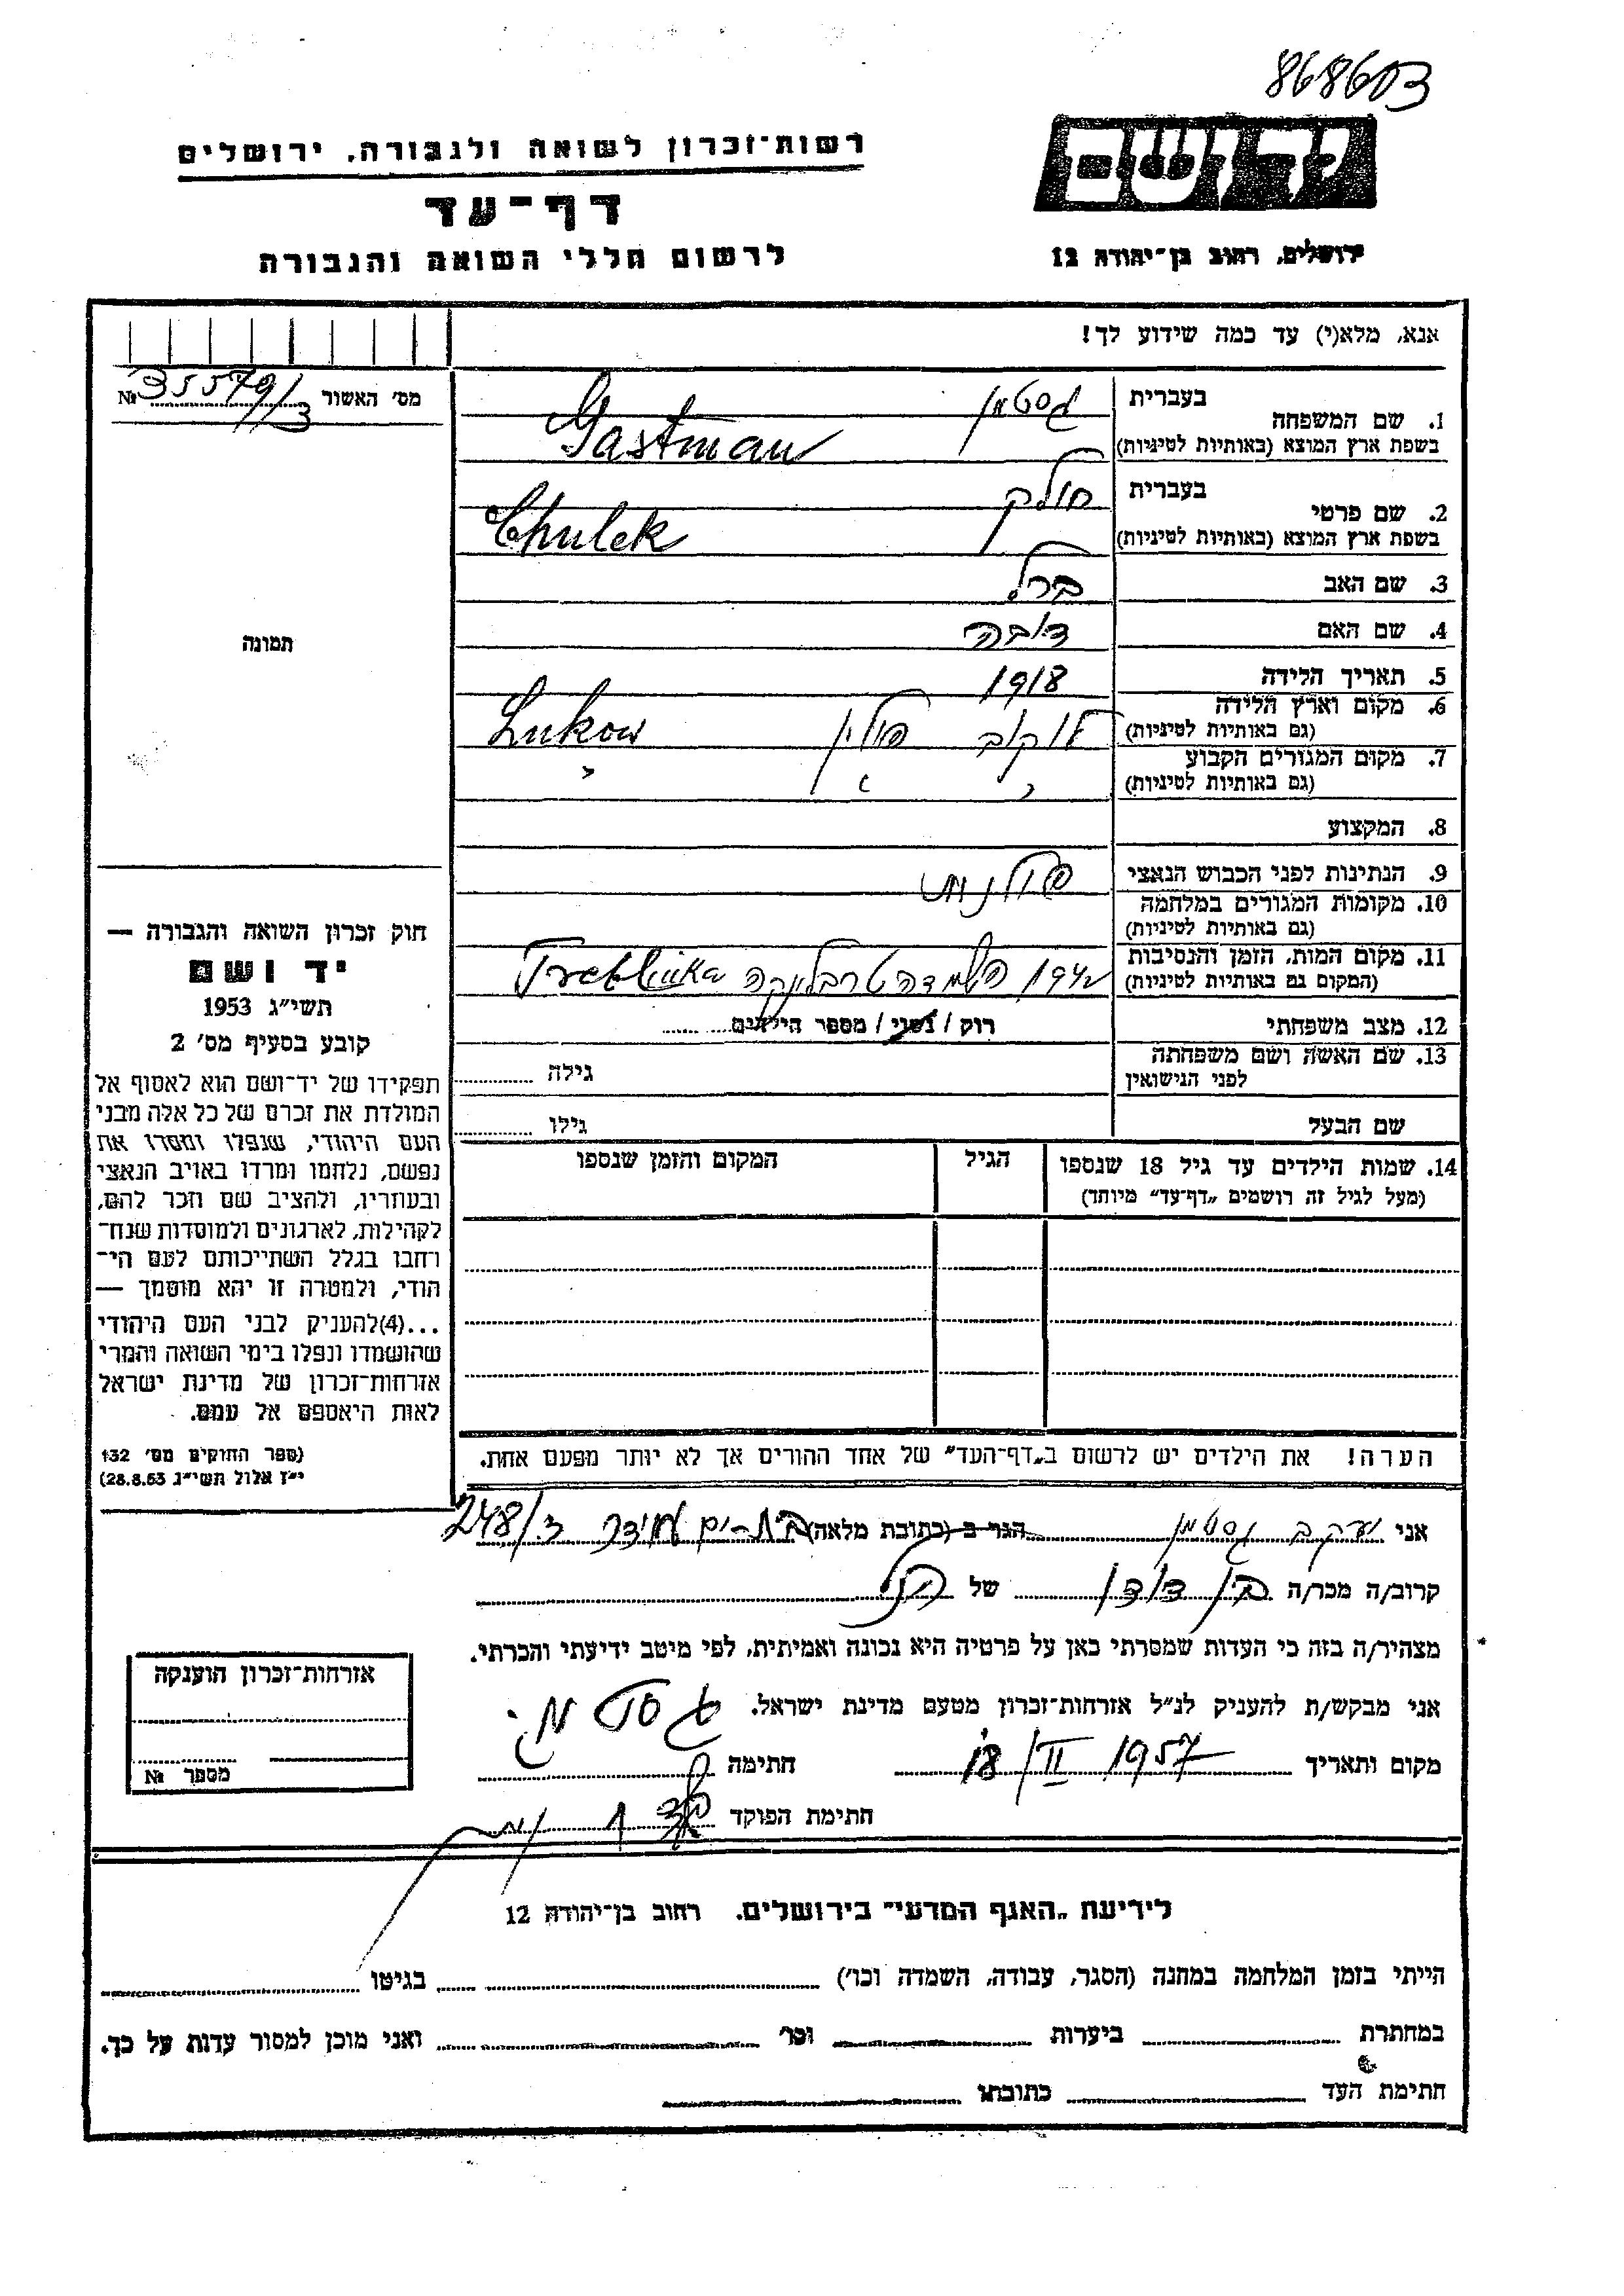 868603
יד ושם
רשות־זכרון לשואה ולגבורה, ירושלים
דף־עד
ירושלים, רחוב בן־יהודה 12
לרשום חללי השואה והגבורה
אנא, מלא(י) עד כמה שידוע לך!
מס׳ האשור № 35579/3
1. שם המשפחה בעברית גסטמן
בשפת ארץ המוצא (באותיות לטיניות) Gastman
2. שם פרטי בעברית חולק
בשפת ארץ המוצא (באותיות לטיניות) Chulek
3. שם האב ברל
4. שם האם דובה
5. תאריך הלידה 1918
6. מקום וארץ הלידה לוקוב פולין Lukow
(גם באותיות לטיניות)
7. מקום המגורים הקבוע
(גם באותיות לטיניות) " " "
8. המקצוע
9. הנתינות לפני הכבוש הנאצי פולנית
10. מקומות המגורים במלחמה
(גם באותיות לטיניות)
11. מקום המות, הזמן והנסיבות
(המקום גם באותיות לטיניות) 1942 השמדה טרבלינקה Treblinka
12. מצב משפחתי רוק / נשוי / מספר הילדים
13. שם האשה ושם משפחתה
לפני הנישואין גילה
שם הבעל גילו
14. שמות הילדים עד גיל 18 שנספו הגיל המקום והזמן שנספו
(מעל לגיל זה רושמים „דף־עד" מיוחד)
תמונה
חוק זכרון השואה והגבורה —
יד ושם
תשי״ג 1953
קובע בסעיף מס׳ 2
תפקידו של יד־ושם הוא לאסוף אל
המולדת את זכרם של כל אלה מבני
העם היהודי, שנפלו ומסרו את
נפשם, נלחמו ומרדו באויב הנאצי
ובעוזריו, ולהציב שם וזכר להם,
לקהילות, לארגונים ולמוסדות שנח־
רחבו בגלל השתייכותם לעם הי־
הודי, ולמטרה זו יהא מוסמך —
...(4)להעניק לבני העם היהודי
שהושמדו ונפלו בימי השואה והמרי
אזרחות־זכרון של מדינת ישראל
לאות היאספם אל עמם.
(ספר החוקים מס׳ 132
י״ז אלול תשי״ג 28.8.53)
הערה! את הילדים יש לרשום ב„דף־העד" של אחד ההורים אך לא יותר מפעם אחת.
אני יעקב גסטמן הגר ב (כתובת מלאה) בת-ים עמידר ד/248
קרוב/ה מכר/ה בן דודו של הנ״ל
מצהיר/ה בזה כי העדות שמסרתי כאן על פרטיה היא נכונה ואמיתית, לפי מיטב ידיעתי והכרתי.
אני מבקש/ת להעניק לנ״ל אזרחות־זכרון מטעם מדינת ישראל.
מקום ותאריך 18/II 1957 חתימה גסטמן
חתימת הפוקד
אזרחות־זכרון הוענקה
מספר №
לידיעת „האגף המדעי" בירושלים, רחוב בן־יהודה 12
הייתי בזמן המלחמה במחנה (הסגר, עבודה, השמדה וכו׳) בגיטו
במחתרת ביערות וכו׳ ואני מוכן למסור עדות על כך.
חתימת העד כתובתו